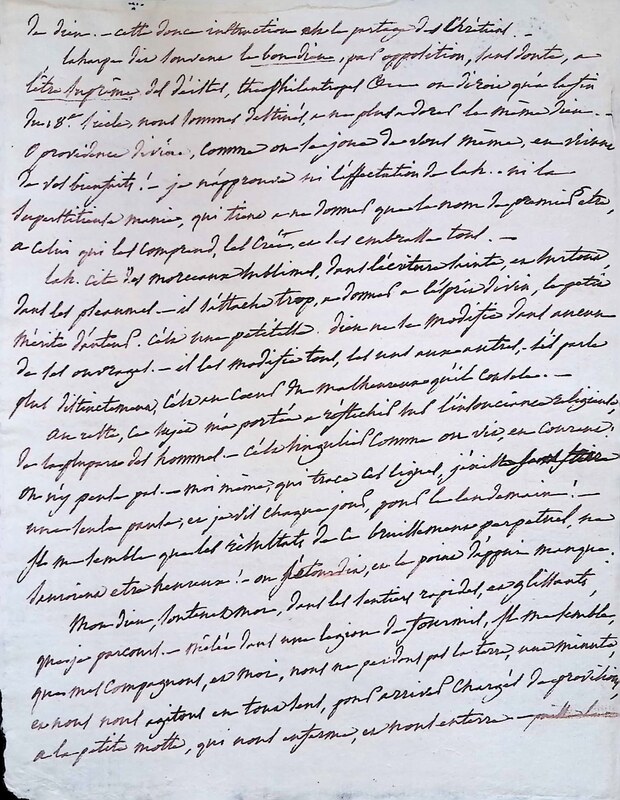 de dieu. - cette donc instruction est le partage des Chrétiens. -
laharpe dit souvent le bon dieu, par opposition, sans doute, a
l'être suprême des déistes, théophilantropes &a on diroit qu'a la fin
du 18e. siecle, nous sommes destinés, a ne plus adorer le même dieu. -
O providence divine, comme on se joue de vous même, en vivant
de vos bienfaits! - je n'approuve ni l'affectation de lah. - ni la
superstitieuse manie, qui tient a ne donner que le nom de premier être,
a celui qui les comprend, les crée, et les embrasse tous. -
lah. cite des morceaux sublimes, dans l'écriture sainte, et surtout
dans les pseaumes - il s'attache trop, a donner a l'esprit divin, le petit
mérite d'auteur. C'est une petitesse. dieu ne se modifie dans aucun
de ses ouvrages. - il les modifie tous, les uns aux autres. - s'il parle
plus distinctement, c'est au coeur du malheureux qu'il console. -
Au reste, ce sujet m'a portée a réfléchir sur l'insouciance religieuse,
de la plupart des hommes. - c'est singulier comme on vit, en courant.
on n'y pense pas. - moi même, qui trace ces lignes, j'existe
une seule pause, et je vis chaque jour, pour le lendemain! -
Il me semble que les résultats de ce bruissement perpetuel, ne
sauroient etre heureux! - on s'étourdit, et le point d'appui manque.
Mon dieu, soutenez moi, dans les sentiers rapides, et glissants,
que je parcours. - mêlée dans une legion de fourmis, Il me semble,
que mes compagnons, et moi, nous ne perdons pas la terre, une minute,
et nous nous agitons en tous sens, pour arriver chargés de provisions,
a la petite motte, qui nous enferme, et nous enterre -